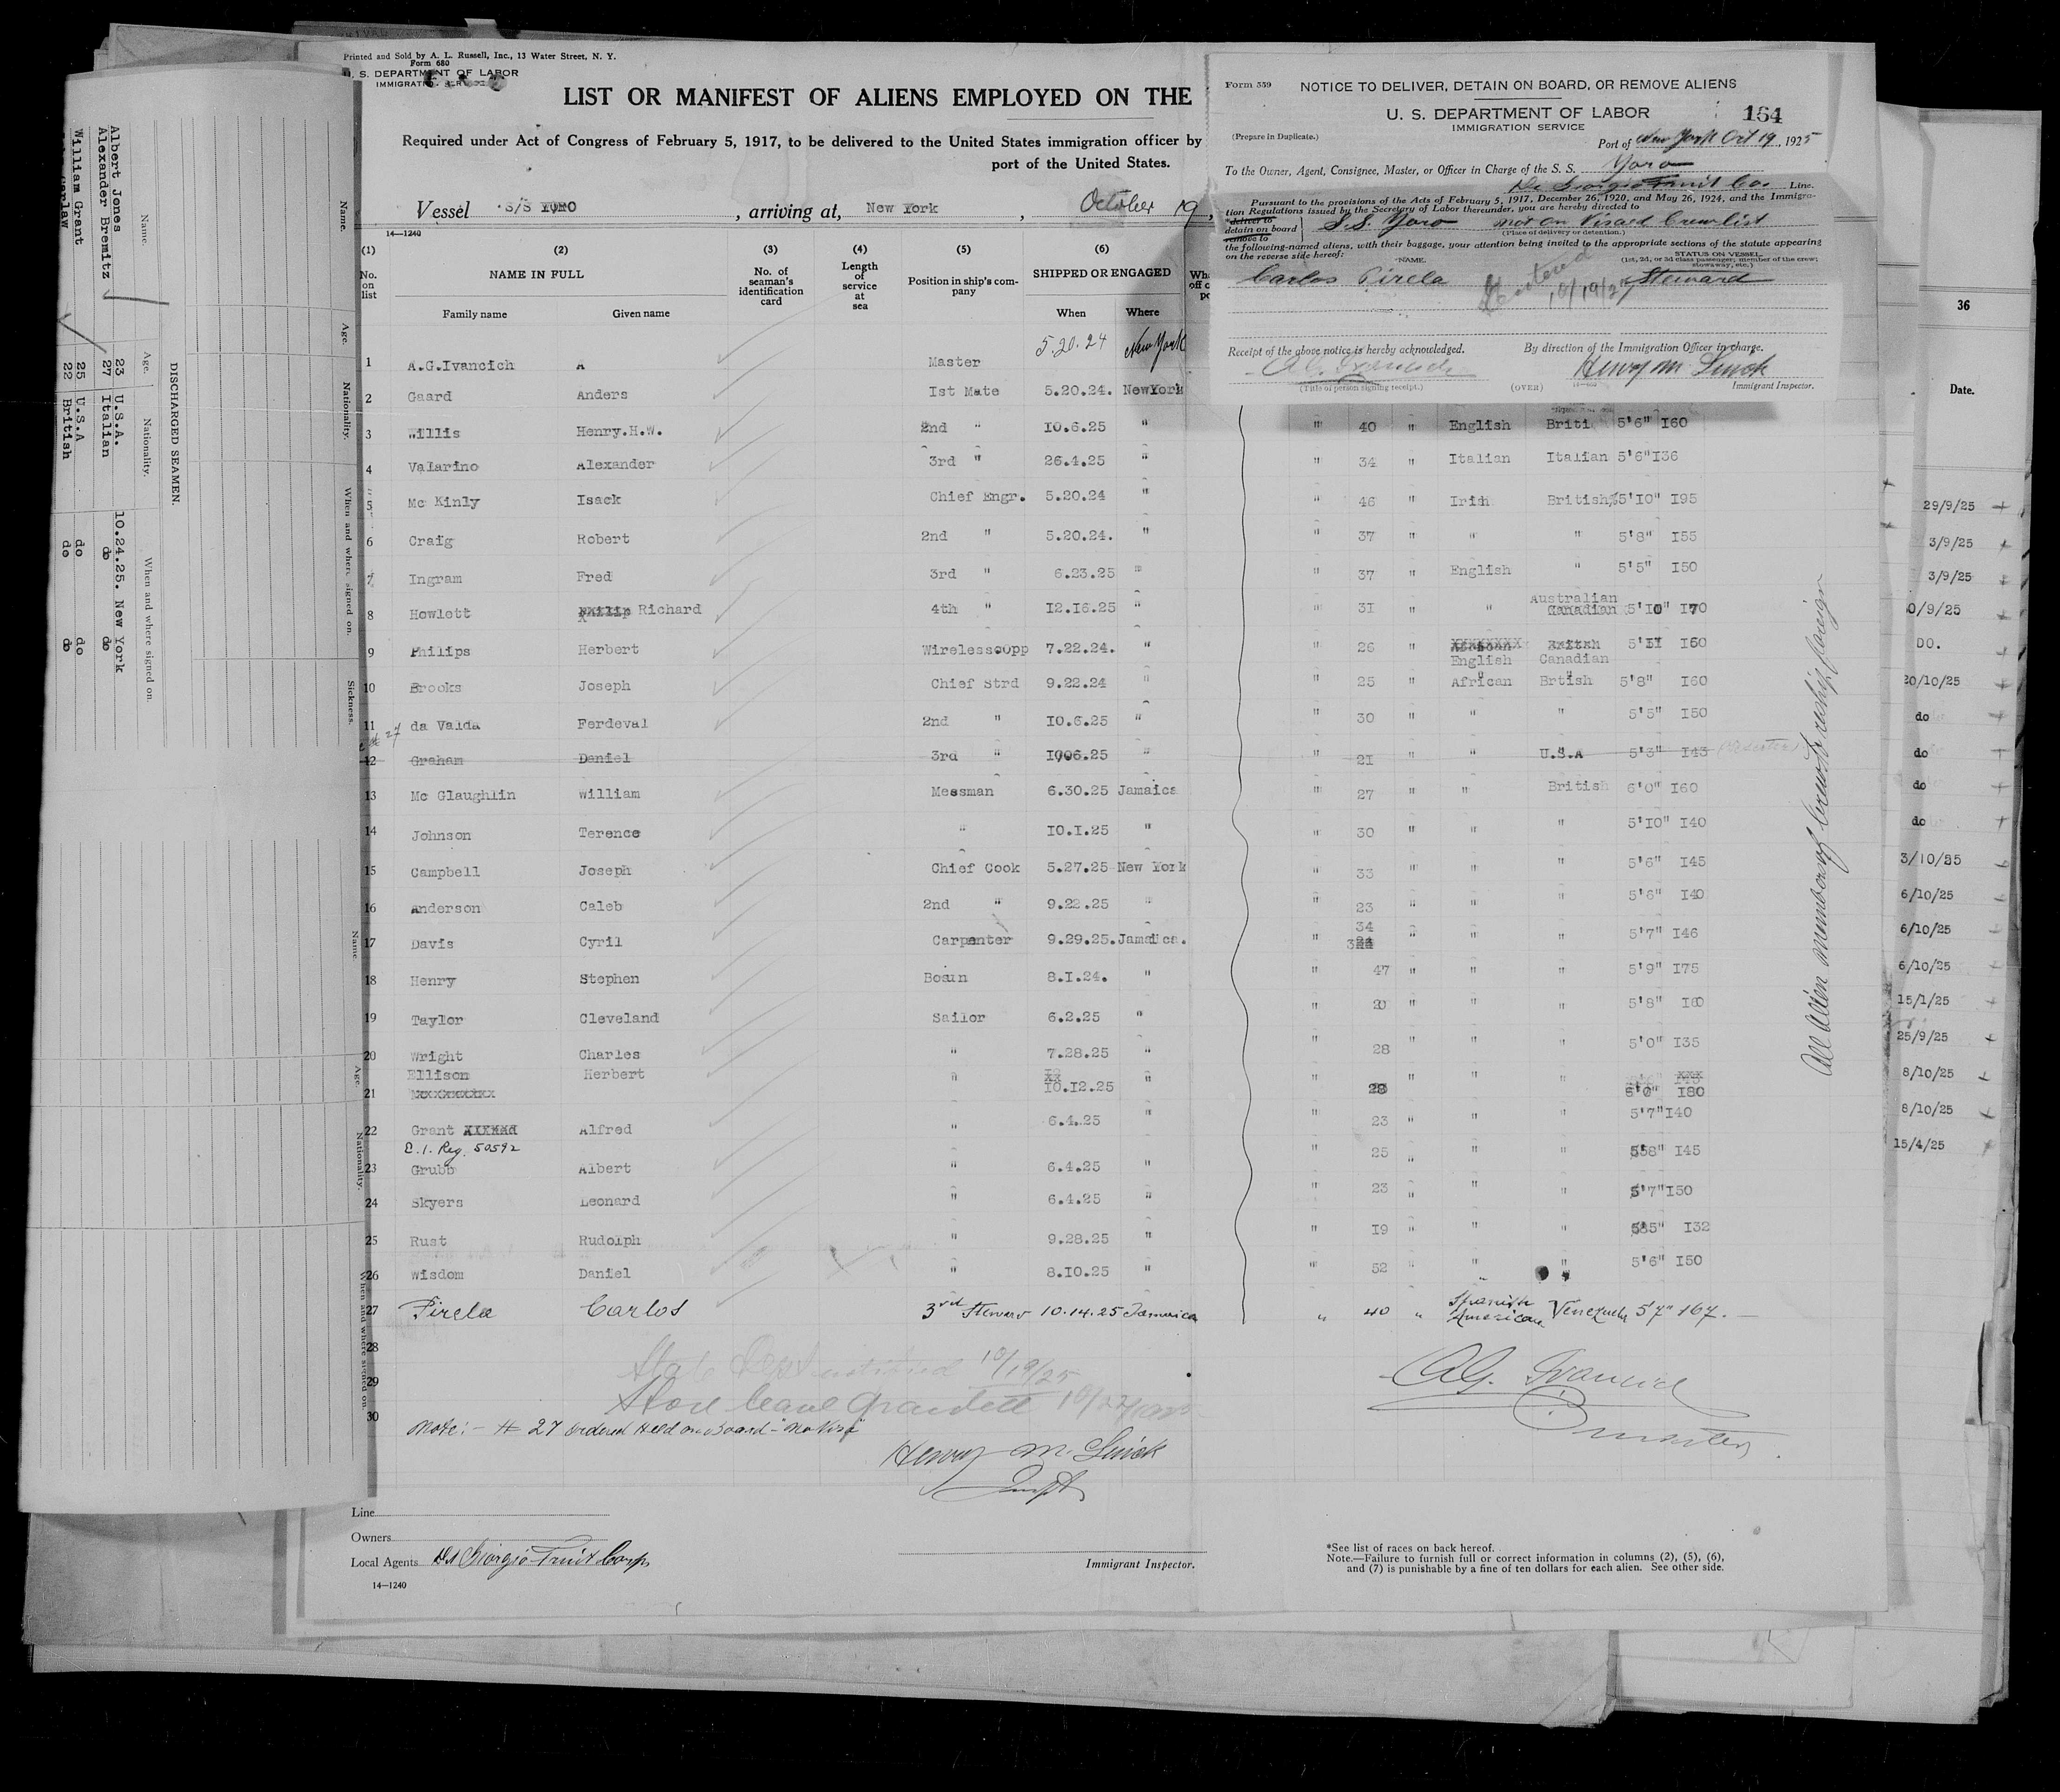 Printed and Sold by A. L. Russell, Inc., 13 Water Street, N. Y.
Form 680
U. S. DEPARTMENT OF LABOR
LIST OR MANIFEST OF ALIENS EMPLOYED ON THE
Required under Act of Congress of February 5, 1917, to be delivered to the United States immigration officer by
port of the United States.
Vessel S/S YORO , arriving at, New York , October 19,
14—1240
(1) (2) (3) (4) (5) (6)
No. on list NAME IN FULL No. of seaman's identification card Length of service at sea Position in ship's company SHIPPED OR ENGAGED
Family name Given name When Where
1 A.G.Ivancich A Master 5.20.24 New York
2 Gaard Anders 1st Mate 5.20.24. NewYork
3 Willis Henry.H.W. 2nd " 10.6.25 " " 40 " English Briti 5'6" 160
4 Valarino Alexander 3rd " 26.4.25 " " 34 " Italian Italian 5'6" 136
5 Mc Kinly Isack Chief Engr. 5.20.24 " " 46 " Irish British 5'10" 195
6 Craig Robert 2nd " 5.20.24. " " 37 " " " 5'8" 155
7 Ingram Fred 3rd " 6.23.25 " " 37 " English " 5'5" 150
8 Howlett Philip Richard 4th " 12.16.25 " " 31 " " Australian Canadian 5'10" 170
9 Philips Herbert Wirelessopp 7.22.24. " " 26 " English Canadian 160
10 Brooks Joseph Chief Strd 9.22.24 " " 25 " African Brtish 5'8" 160
11 da Valda Ferdeval 2nd " 10.6.25 " " 30 " " " 5'5" 150
12 Graham Daniel 3rd " 1006.25 " " 21 " " U.S.A 5'3" 143
13 Mc Glaughlin William Messman 6.30.25 Jamaica " 27 " " British 6'0" 160
14 Johnson Terence " 10.1.25 " " 30 " " " 5'10" 140
15 Campbell Joseph Chief Cook 5.27.25 New York " 33 " " " 5'6" 145
16 Anderson Caleb 2nd " 9.22.25 " " 23 " " " 5'6" 140
17 Davis Cyril Carpenter 9.29.25. Jamaica. " 34 " " " 5'7" 146
18 Henry Stephen Bosun 8.1.24. " " 47 " " " 5'9" 175
19 Taylor Cleveland Sailor 6.2.25 " " 20 " " " 5'8" 160
20 Wright Charles " 7.28.25 " " 28 " " " 5'0" 135
21 Ellison Herbert " 10.12.25 " " 28 " " " 6'0" 180
22 Grant Alfred " 6.4.25 " " 23 " " " 5'7" 140
E.I. Reg. 50592
23 Grubb Albert " 6.4.25 " " 25 " " " 5'8" 145
24 Skyers Leonard " 6.4.25 " " 23 " " " 5'7" 150
25 Rust Rudolph " 9.28.25 " " 19 " " " 5'5" 132
26 Wisdom Daniel " 8.10.25 " " 52 " " " 5'6" 150
27 Pirela Carlos 3rd Steward 10.14.25 Jamaica " 40 " Spanish American Venezuela 5'7" 167.
28
29
30
State Dept notified 10/19/25
Shore leave granted 10/22/25
Note:- # 27 ordered Held on Board - "No Visa"
Henry M. Linck
Inspt
A.G. Ivancich
Master
All Alien members of crew to reship foreign
Line
Owners
Local Agents Di Giorgio Fruit Corp
Immigrant Inspector.
14—1240
*See list of races on back hereof.
Note.—Failure to furnish full or correct information in columns (2), (5), (6),
and (7) is punishable by a fine of ten dollars for each alien. See other side.
Form 559
NOTICE TO DELIVER, DETAIN ON BOARD, OR REMOVE ALIENS
U. S. DEPARTMENT OF LABOR
164
IMMIGRATION SERVICE
(Prepare in Duplicate.)
Port of New York Oct 19, 1925
To the Owner, Agent, Consignee, Master, or Officer in Charge of the S. S. Yoro
Di Georgio Fruit Co. Line.
Pursuant to the provisions of the Acts of February 5, 1917, December 26, 1920, and May 26, 1924, and the Immigra-
tion Regulations issued by the Secretary of Labor thereunder, you are hereby directed to
deliver to
detain on board S.S. Yoro not on Visaed Crew list
remove to
(Place of delivery or detention.)
the following-named aliens, with their baggage, your attention being invited to the appropriate sections of the statute appearing
on the reverse side hereof:
NAME. STATUS ON VESSEL.
(1st, 2d, or 3d class passenger; member of the crew; stowaway, etc.)
Carlos Pirela Steward
Entered 10/19/25
Receipt of the above notice is hereby acknowledged.
By direction of the Immigration Officer in charge.
A.G. Ivancich
Henry M Linck
(Title of person signing receipt.) (OVER) Immigrant Inspector.
DISCHARGED SEAMEN.
Name. Age. Nationality. When and where signed on.
Albert Jones 23 U.S.A. 10.24.25. New York
Alexander Bremitz 27 Italian do do
William Grant 25 U.S.A do do
22 British do do
Name. Age. Nationality. When and where signed on. Sickness.
Name. Age. Nationality. When and where signed on.
36
Date.
29/9/25
3/9/25
3/9/25
0/9/25
DO.
20/10/25
do
do
do
do
3/10/25
6/10/25
6/10/25
6/10/25
15/1/25
25/9/25
8/10/25
8/10/25
15/4/25